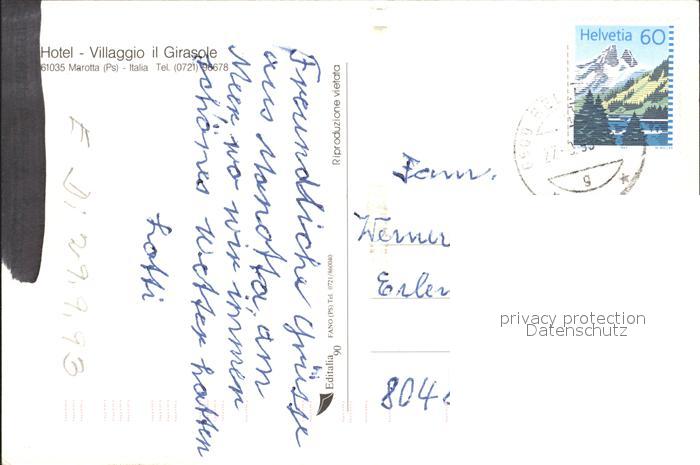 Hotel - Villaggio il Girasole
61035 Marotta (Ps) - Italia Tel. (0721) 96678
Freundliche Grüsse
aus Marotta, am
Meer wo wir immer
schönes Wetter hatten
Lotti
E Di 29.9.93
Riproduzione vietata
FANO (PS) Tel. 0721/860040
Editalia
90
Helvetia 60
g
Fam.
Werner
Erler
804
privacy protection
Datenschutz